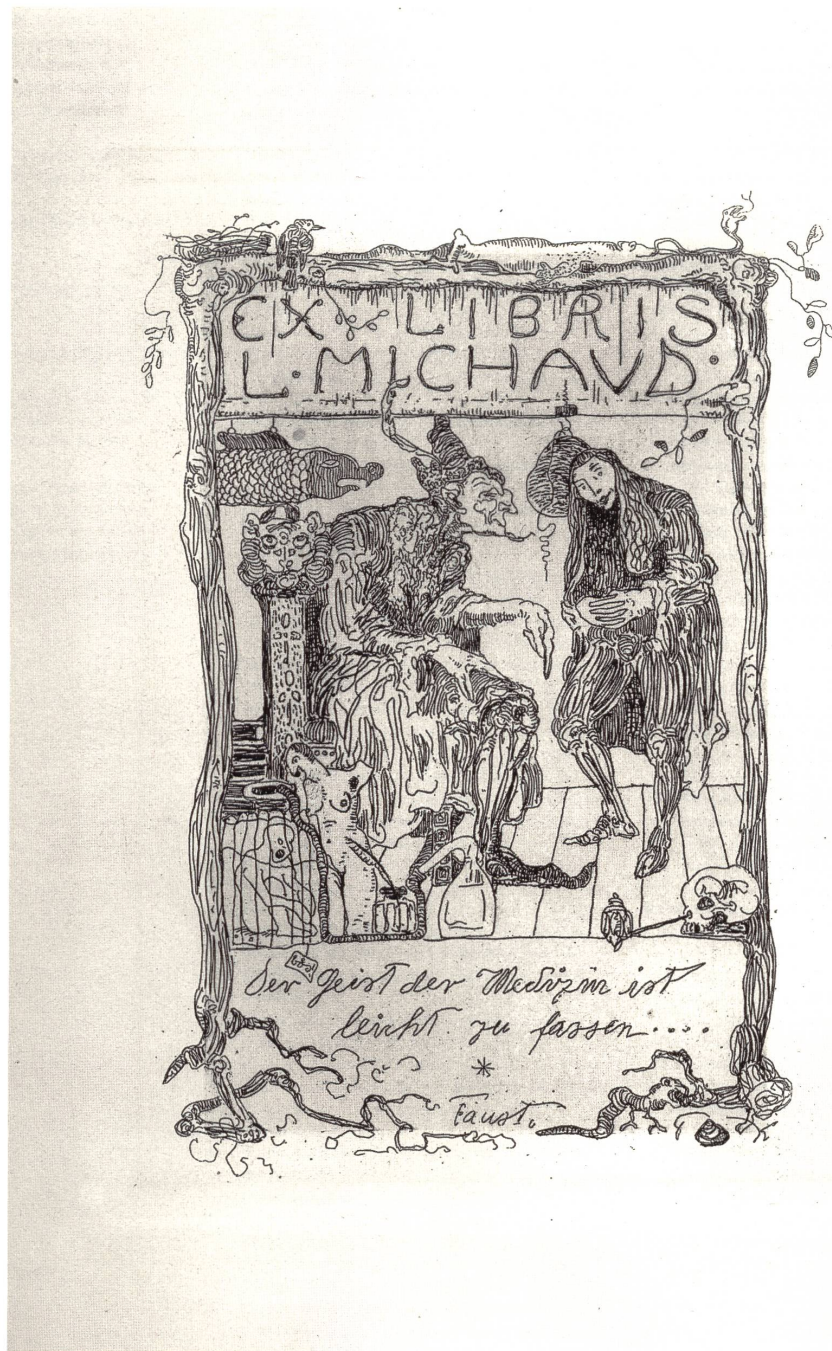 EX LIBRIS
L. MICHAUD.
Der Geist der Medizin ist
leicht zu fassen....
*
Faust.